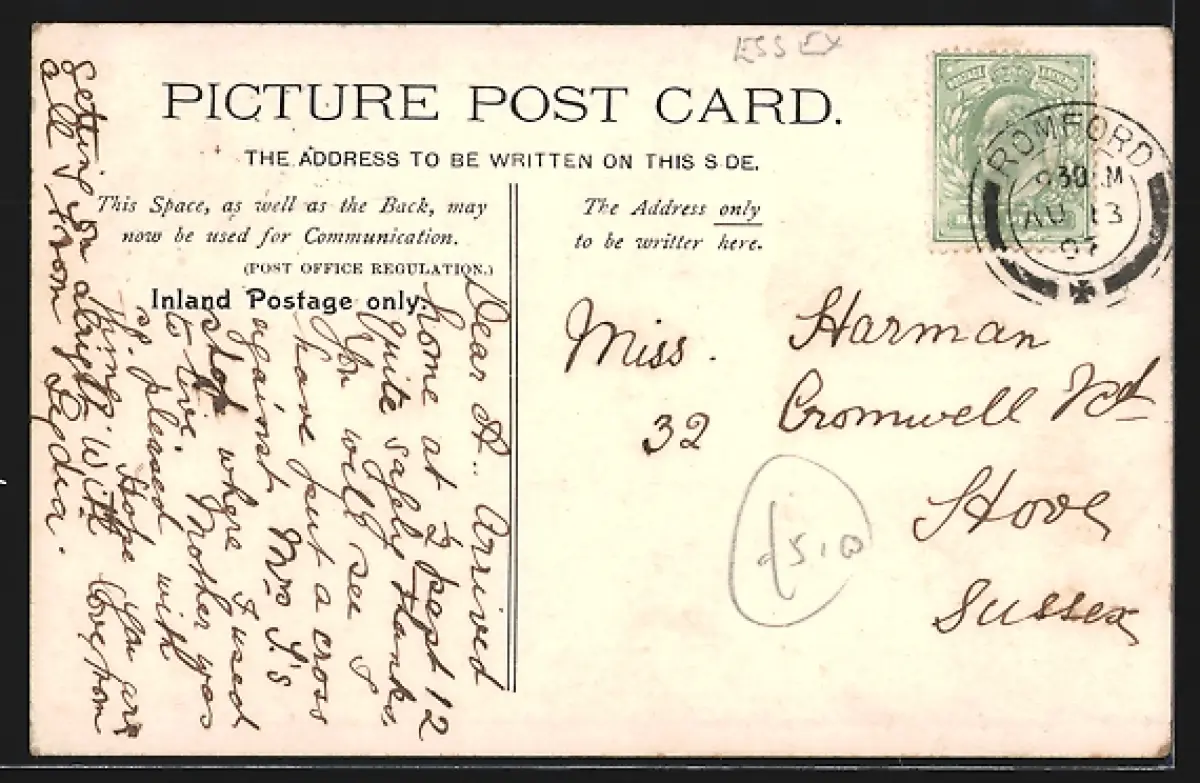 ESSEX
PICTURE POST CARD.
THE ADDRESS TO BE WRITTEN ON THIS S DE.
This Space, as well as the Back, may
now be used for Communication.
(POST OFFICE REGULATION.)
Inland Postage only.
The Address only
to be writter here.
ROMFORD
30 AM
AU 13
07
Miss. Harman
32 Cromwell Rd
Hove
Sussex
£5.00
Dear A.. Arrived
home at ½ past 12
quite safely thanks,
You will see I
have put a cross
against Mrs S's
shop where I used
to live. Mother was
so pleased with
. Hope you are
With love from
getting on alright
all from Lydia.